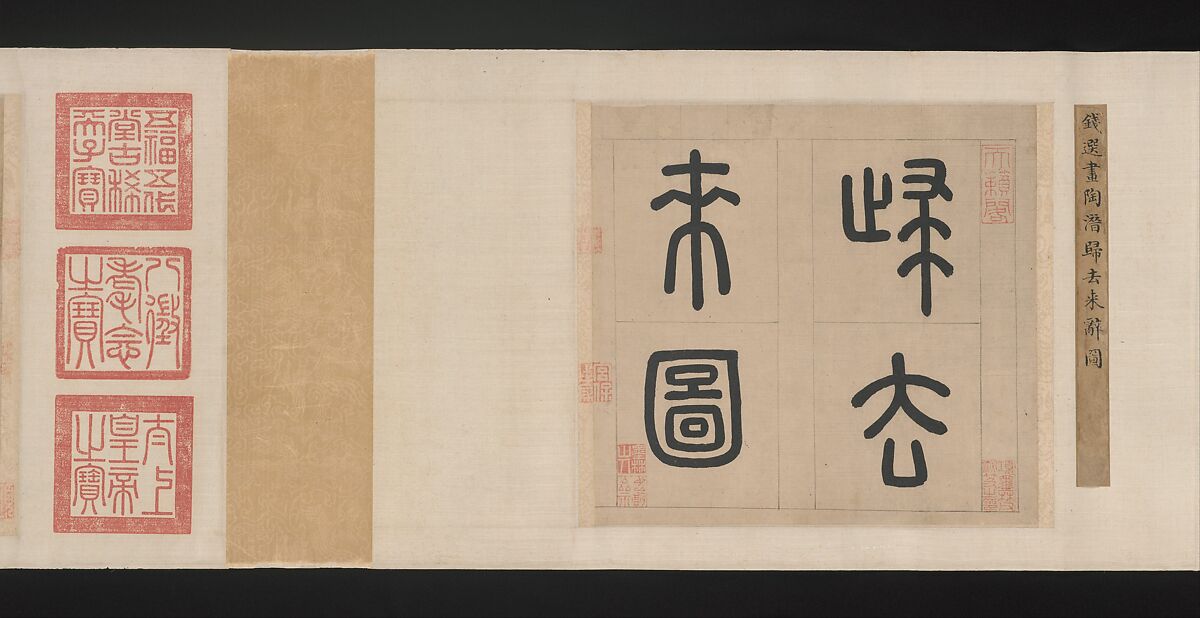 錢選畫陶潛歸去来辭圖
天籟閣
歸去
來圖
五福五代
堂古稀
天子寶
八徵
耄念
之寶
太上
皇帝
之寶